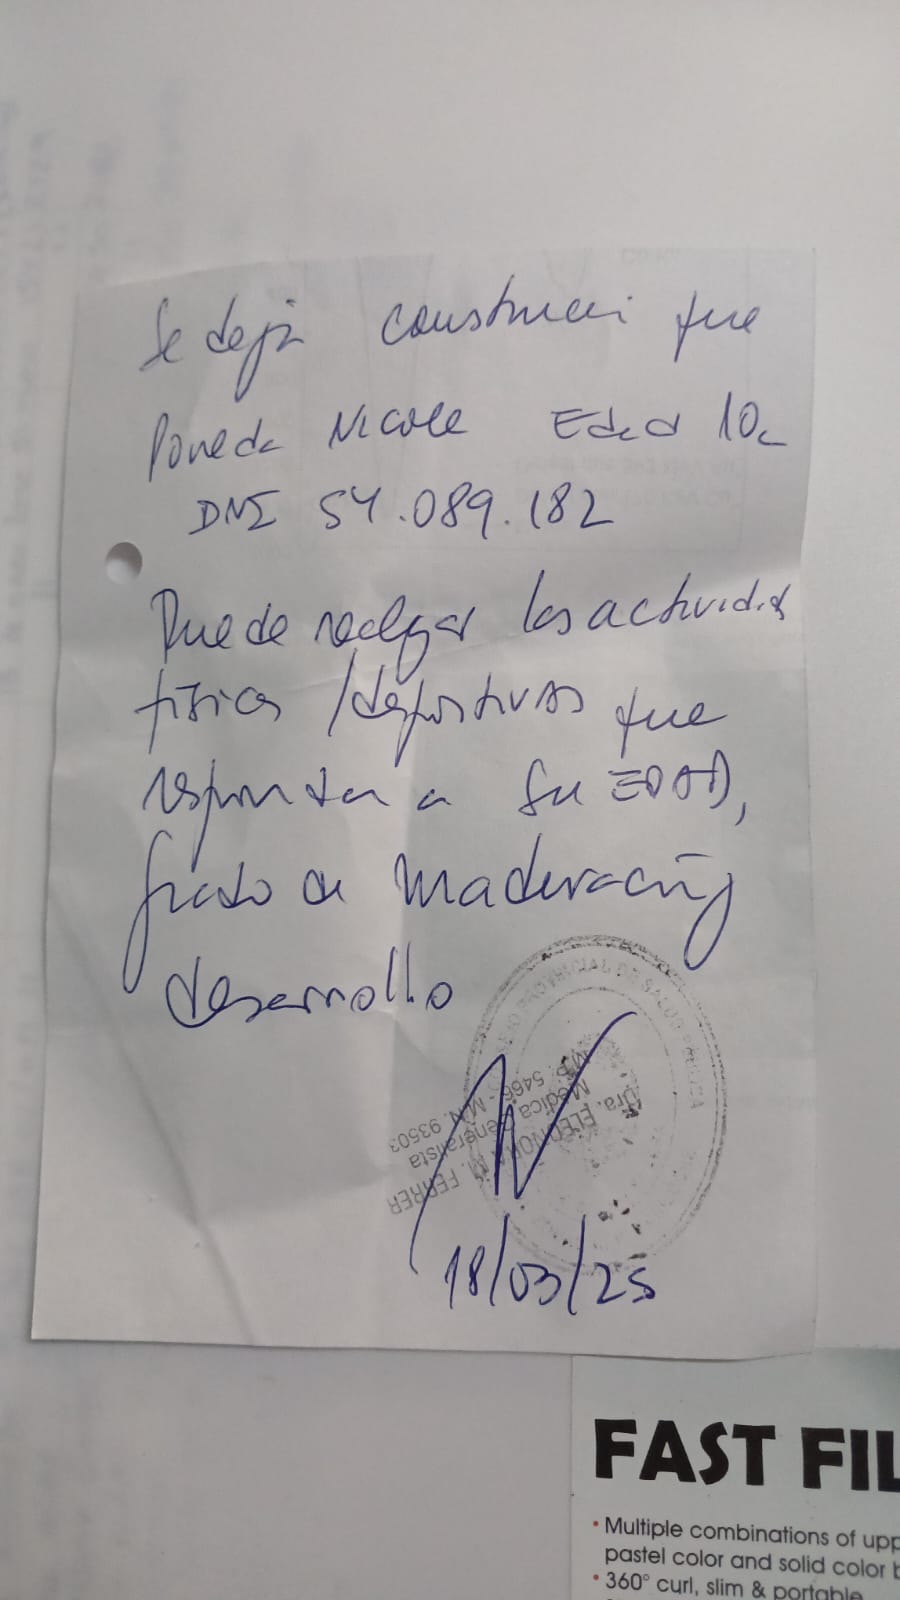 Se deja constancia que
Poneda Nicole Edad 10a
DNI 54.089.182
Puede realizar las actividades
físicas /deportivas que
respondan a su EDAD,
grado de maduración y
desarrollo
PROVINCIAL DE SALUD PUBLICA
Dra. ELEONORA M. FERRER
Médica Generalista
M.P. 5466 - M.N. 93503
18/03/25
FAST FIL
• Multiple combinations of upp
pastel color and solid color b
• 360° curl, slim & portable